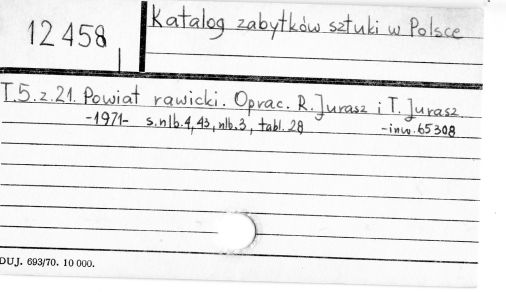 12 458
Katalog zabytków sztuki w Polsce
T.5.z.21. Powiat rawicki. Oprac. R. Jurasz i T. Jurasz.
-1971- s.nlb.4, 43, nlb.3, tabl.28 -inw.65308
DUJ. 693/70. 10 000.